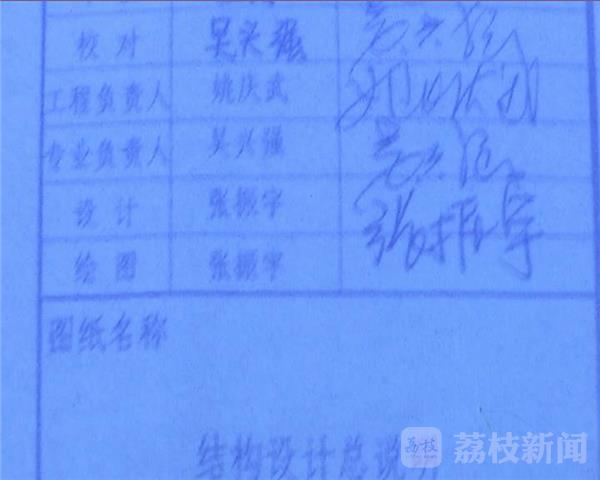 校 对 吴兴强
工程负责人 姚庆武
专业负责人 吴兴强
设 计 张振宇 张振宇
绘 图 张振宇
图纸名称
结构设计总说
荔枝 荔枝新闻